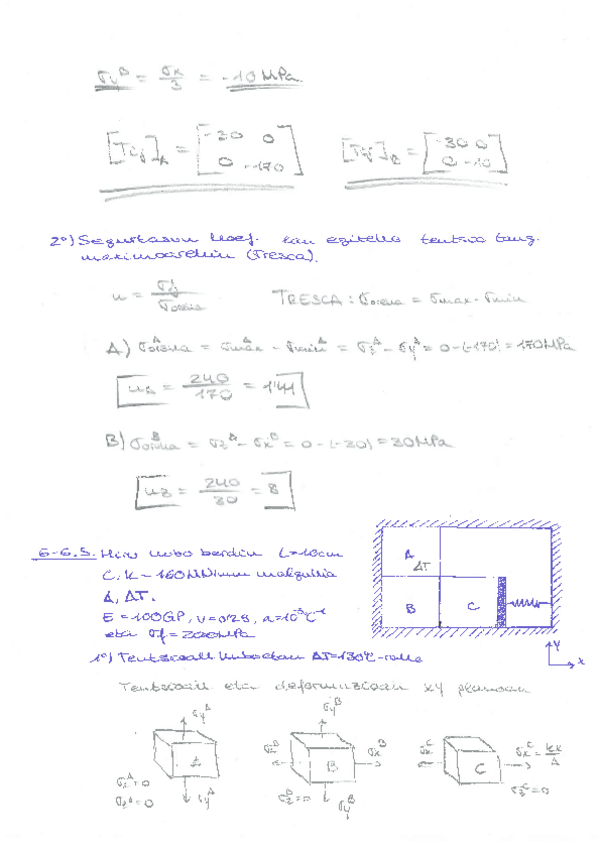 σy^B = σx/3 = -10 MPa
[Tij]A = [-30 0; 0 -170] [Tij]B = [-30 0; 0 -10]
2º) Segurtasun koef. lan egiteko tentsio tang.
maximoarekin (Tresca).
n = σf/σbaliok TRESCA: σbaliok = σmax - σmin
A) = σmax^A - σmin^A = σz^A - σy^A = 0-(-170) = 170MPa
nA = 240/170 = 1'41
B) = σz^A - σx^B = 0-(-30) = 30MPa
nB = 240/30 = 8
6-6.5. Hiru kubo berdin L=10cm
C, k = 160 MN/mm malgukia
A, ΔT.
E = 100GP, ν=0'28, α=10^-5 ºC^-1
eta σf = 200MPa
A
ΔT
B C
y
x
1º) Tentsioak kuboetan ΔT=130ºC-rako
Tentsioak eta deformazioak xy planoan
σy^A σy^B
A σx^B B σx^B σx^C C σx^C = kx/A
σx^A=0
σz^A=0 σy^A σz^B=0 σy^B σz^C=0